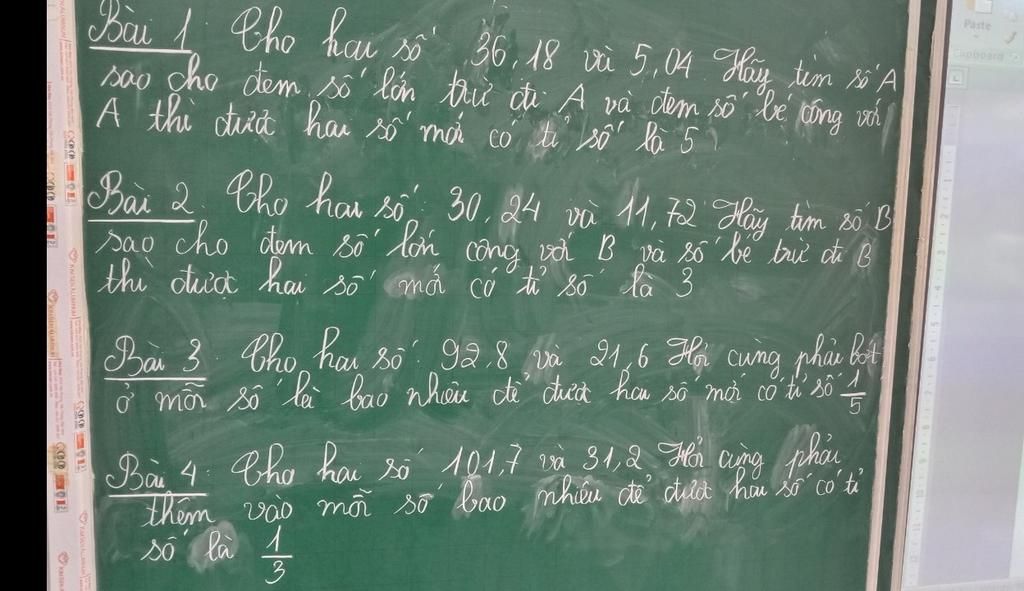 Bài 1 Cho hai số 36,18 và 5,04 Hãy tìm số A
sao cho đem số lớn trừ đi A và đem số bé cộng với
A thì được hai số mới có tỉ số là 5
Bài 2 Cho hai số 30,24 và 11,72 Hãy tìm số B
sao cho đem số lớn cộng với B và số bé trừ đi B
thì được hai số mới có tỉ số là 3
Bài 3 Cho hai số 92,8 và 21,6 Hỏi cùng phải bớt
ở mỗi số là bao nhiêu để được hai số mới có tỉ số 1/5
Bài 4 Cho hai số 101,7 và 31,2 Hỏi cùng phải
thêm vào mỗi số bao nhiêu để được hai số có tỉ
số là 1/3
Paste
Clipboard